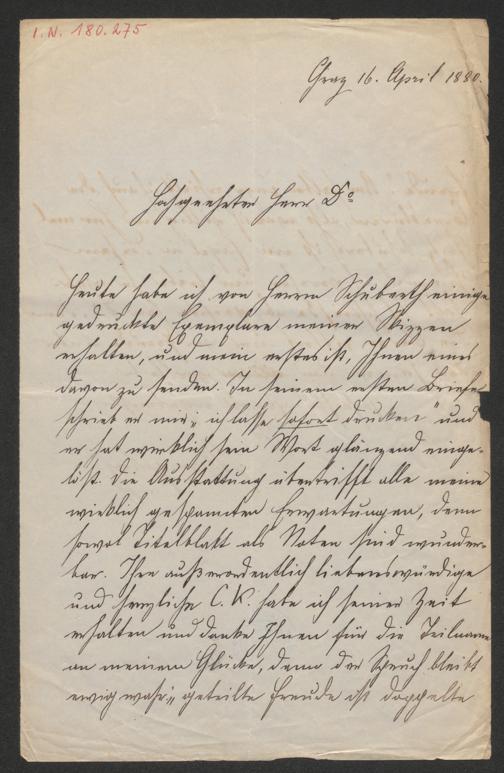 I.N. 180.275
Graz 16. April 1880.
Hochgeehrter Herr Dr
Heute habe ich von Herrn Schuberth einige
gedruckte Exemplare meiner Skizzen
erhalten, und mein erstes ist, Ihnen eines
davon zu senden. In seinem ersten Briefe
schrieb er mir „ich lasse sofort drucken" und
er hat wirklich sein Wort glänzend einge-
löst. Die Ausstattung übertrifft alle meine
wirklich gespannten Erwartungen, denn
sowol Titelblatt als Noten sind wunder-
bar. Ihre außerordentlich liebenswürdige
und herzliche C. K. habe ich seiner Zeit
erhalten und danke Ihnen für die Teilname
an meinem Glücke, denn der Spruch bleibt
ewig wahr: „geteilte Freude ist doppelte